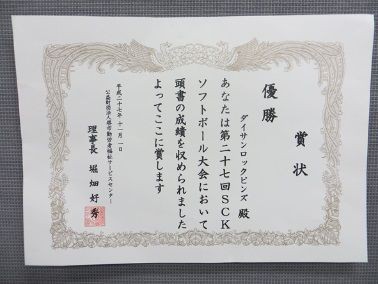 賞状
優勝
ダイサンロックビンズ 殿
あなたは第二十七回SCK
ソフトボール大会において
頭書の成績を収められました
よってここに賞します
平成二十七年十一月一日
公益財団法人堺市勤労者福祉サービスセンター
理事長 堀畑好秀